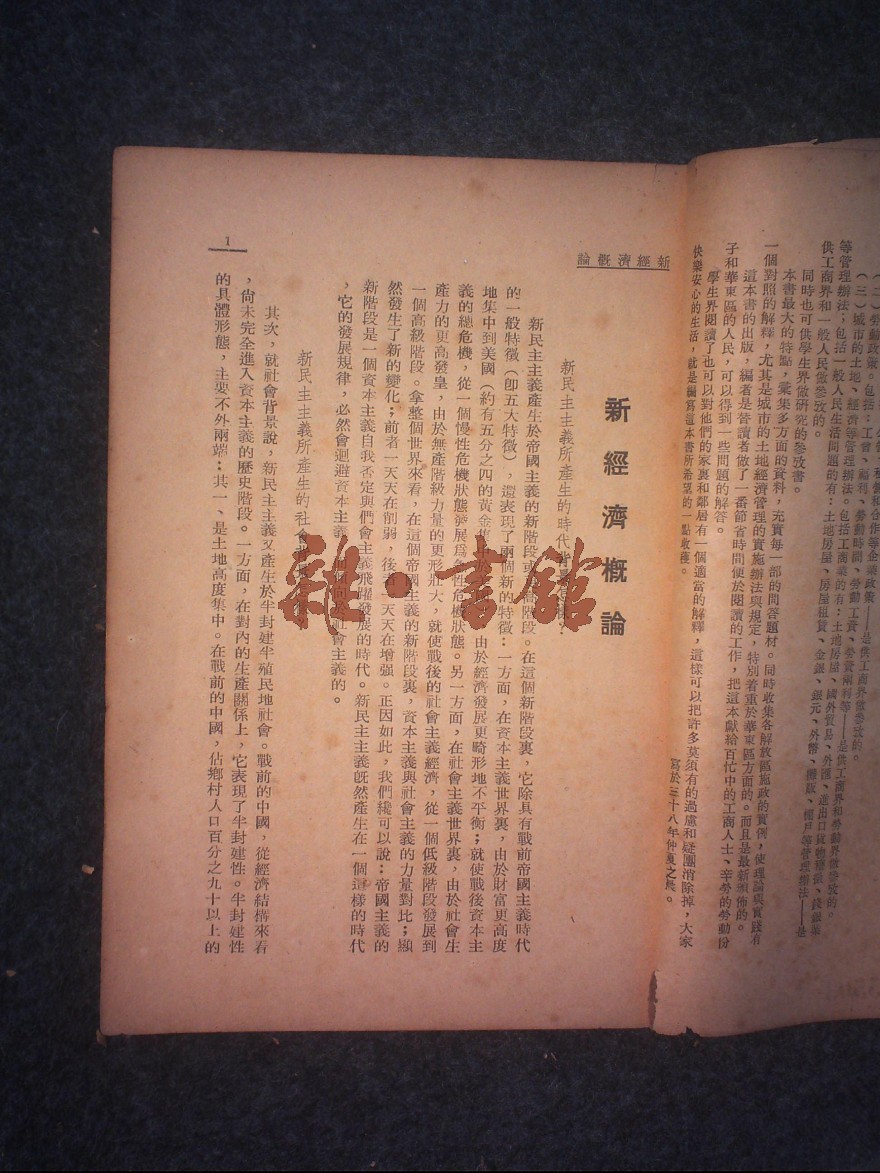 （三）城市的土地、經濟等管理辦法。包括工商業的有：土地房屋、國外貿易、外匯、進出口貨物
等管理辦法；包括一般人民生活問題的有：土地房屋、房屋租賃、金銀、銀元、外幣、
供工商界和一般人民做參攷的。
同時也可供學生界做研究的參攷書。
本書最大的特點，彙集多方面的資料，充實每一部的問答題材。同時收集各解放區施政的實例，使理論與實踐有
一個對照的解釋，尤其是城市的土地經濟管理的實施辦法與規定，特別着重於華東區方面的。而且是最新頒佈的。
這本書的出版，編者是替讀者做了一番節省時間便於閱讀的工作，把這本獻給百忙中的工商人士、辛勞的勞動份
子和華東區的人民，可以得到一些問題的解答。
學生界閱讀了也可以對他們的家裏和鄰居有一個適當的解釋，這樣可以把許多莫須有的過慮和疑團消除掉，大家
快樂安心的生活，就是編寫這本書所希望的一點收穫。
寫於三十八年仲夏之晨。
新經濟概論
新經濟概論
新民主主義所產生的時代背景怎樣？
新民主主義產生於帝國主義的新階段或更高階段。在這個新階段裏，它除具有戰前帝國主義時代
的一般特徵（卽五大特徵），還表現了兩個新的特徵：一方面，在資本主義世界裏，由於財富更高度
地集中到美國（約有五分之四的黃金集中於美國），由於經濟發展更畸形地不平衡；就使戰後資本主
義的總危機，從一個慢性危機狀態發展爲急性危機狀態。另一方面，在社會主義世界裏，由於社會生
產力的更高發皇，由於無產階級力量的更形壯大，就使戰後的社會主義經濟，從一個低級階段發展到
一個高級階段。拿整個世界來看，在這個帝國主義的新階段裏，資本主義與社會主義的力量對比；顯
然發生了新的變化；前者一天天在削弱，後者一天天在增强。正因如此，我們纔可以說：帝國主義的
新階段是一個資本主義自我否定與們會主義飛躍發展的時代。新民主主義旣然產生在一個這樣的時代
，它的發展規律，必然會迴避資本主義，而傾向於社會主義的。
新民主主義所產生的社會
其次，就社會背景說，新民主主義又產生於半封建半殖民地社會。戰前的中國，從經濟結構來看
，尙未完全進入資本主義的歷史階段。一方面，在對內的生產關係上，它表現了半封建性。半封建性
的具體形態，主要不外兩端：其一、是土地高度集中。在戰前的中國，佔鄉村人口百分之九十以上的
1
雜·書館